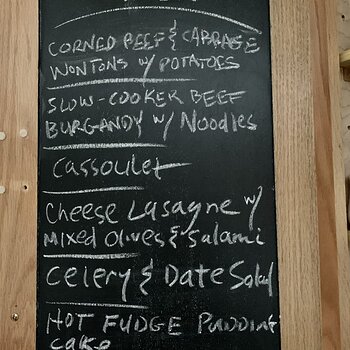 CORNED BEEF & CABBAGE
WONTONS w/ POTATOES
SLOW-COOKER BEEF
BURGANDY w/ NOODLES
CASSOULET
CHEESE LASAGNE w/
MIXED OLIVES & SALAMI
CELERY & DATE SALAD
HOT FUDGE PUDDING
CAKE